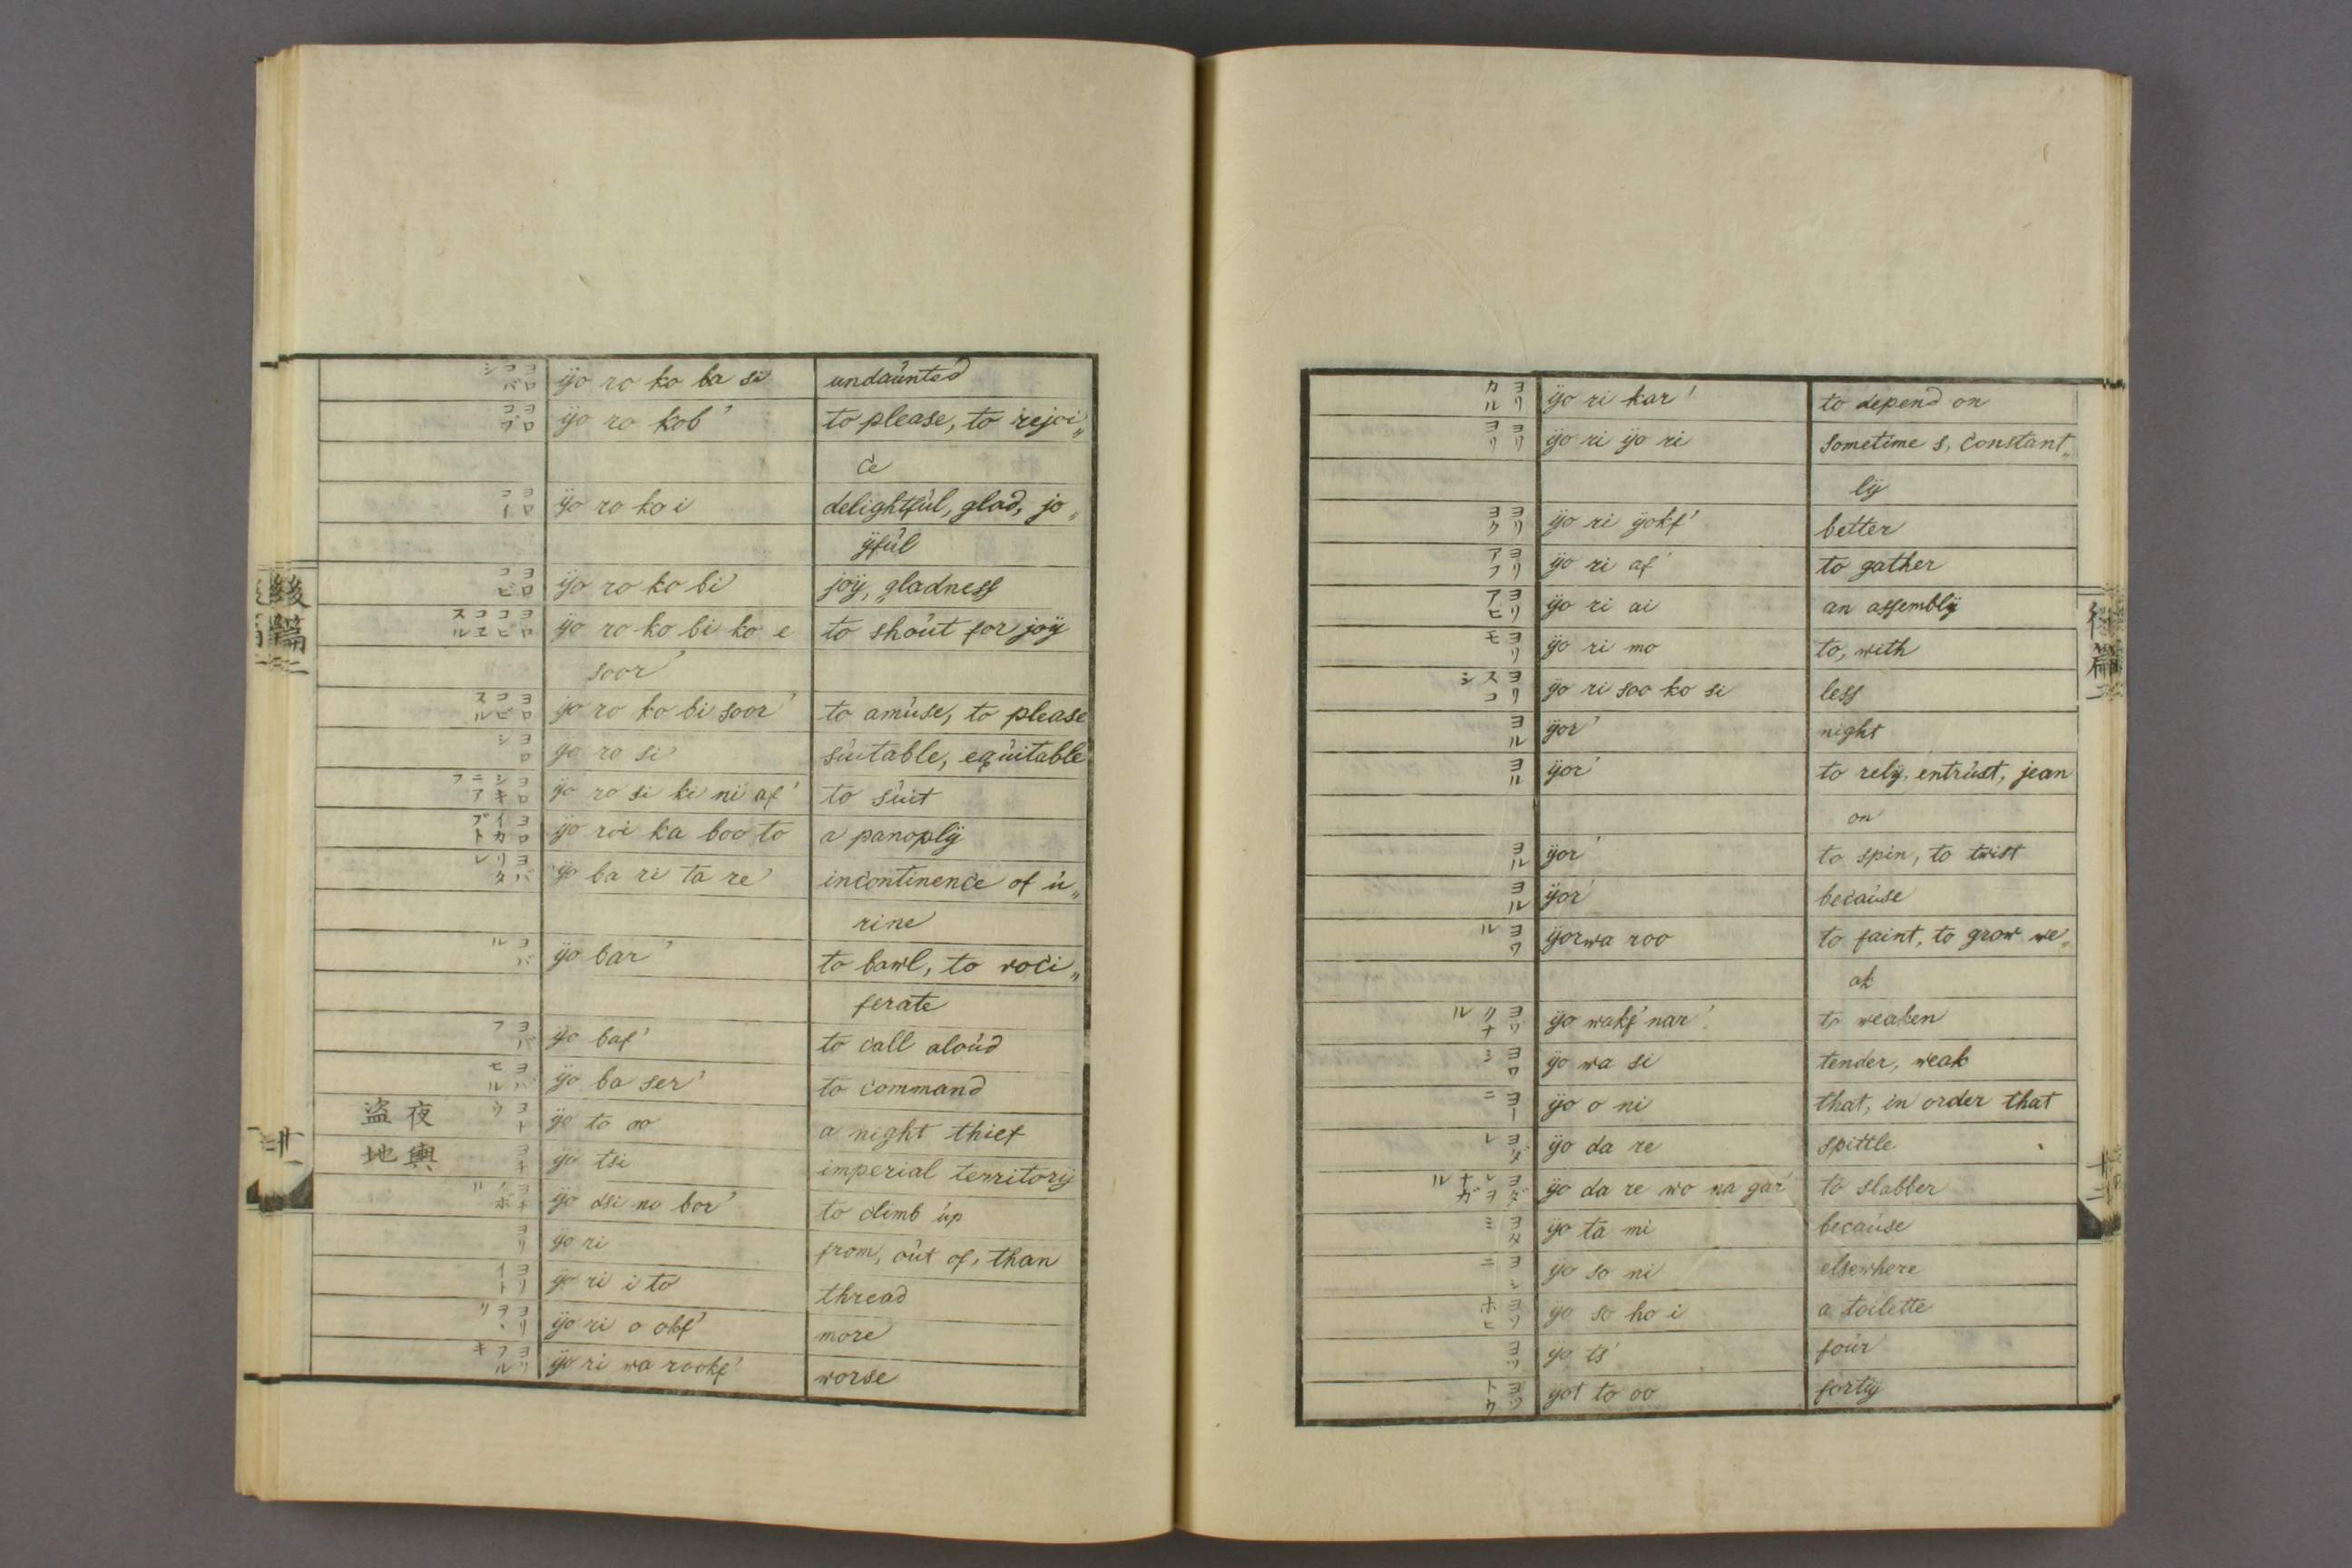 ヨロコバシ ÿo ro ko ba si undaúnted
ヨロコブ ÿo ro kob' to please, to rejoi„
ce
ヨロコイ ÿo ro ko i delightfúl, glad, jo„
ÿfúl
ヨロコビ ÿo ro ko bi joÿ, gladness
ヨロコビコヱスル ÿo ro ko bi ko e to shoút for joÿ
soor'
ヨロコビスル ÿo ro ko bi soor' to amúse, to please
ヨロシ ÿo ro si súitable, eqúitable
ヨロシキニアフ ÿo ro si ki ni af' to súit
ヨロイカブト ÿo roi ka boo to a panoplÿ
ヨバリタレ ÿo ba ri ta re incontinence of ú„
rine
ヨバル ÿo bar' to bawl, to voci„
ferate
ヨバフ ÿo baf' to call aloúd
ヨバセル ÿo ba ser' to command
夜盗 ヨトウ ÿo to oo a night thief
輿地 ヨチ ÿo tsi imperial territorÿ
ヨチノボル ÿo dsi no bor' to climb úp
ヨリ ÿo ri from, oút of, than
ヨリイト ÿo ri i to thread
ÿo ri o okf' more
ÿo ri wa rookf' worse
後篇
ヨリカル ÿo ri kar' to depend on
ヨリヨリ ÿo ri ÿo ri sometime s, constant„
lÿ
ヨリヨク ÿo ri ÿokf' better
ヨリアフ ÿo ri af' to gather
ヨリアヒ ÿo ri ai an assemblÿ
ヨリモ ÿo ri mo to, with
ヨリスコシ ÿo ri soo ko si less
ヨル ÿor' night
ヨル ÿor' to relÿ, entrúst, jean
on
ヨル ÿor' to spin, to twist
ヨル ÿor' becaúse
ヨワル ÿorwa roo to faint, to grow we„
ak
ÿo wakf' nar' to weaken
ヨワシ ÿo wa si tender, weak
ヨーニ ÿo o ni that, in order that
ヨダレ ÿo da re spittle
ヨダレヲナガル ÿo da re wo na gar' to slabber
ヨタミ ÿo ta mi becaúse
ÿo so ni elsewhere
ヨソホヒ ÿo so ho i a toilette
ヨツ ÿo ts' foúr
ヨツトウ ÿot to oo fortÿ